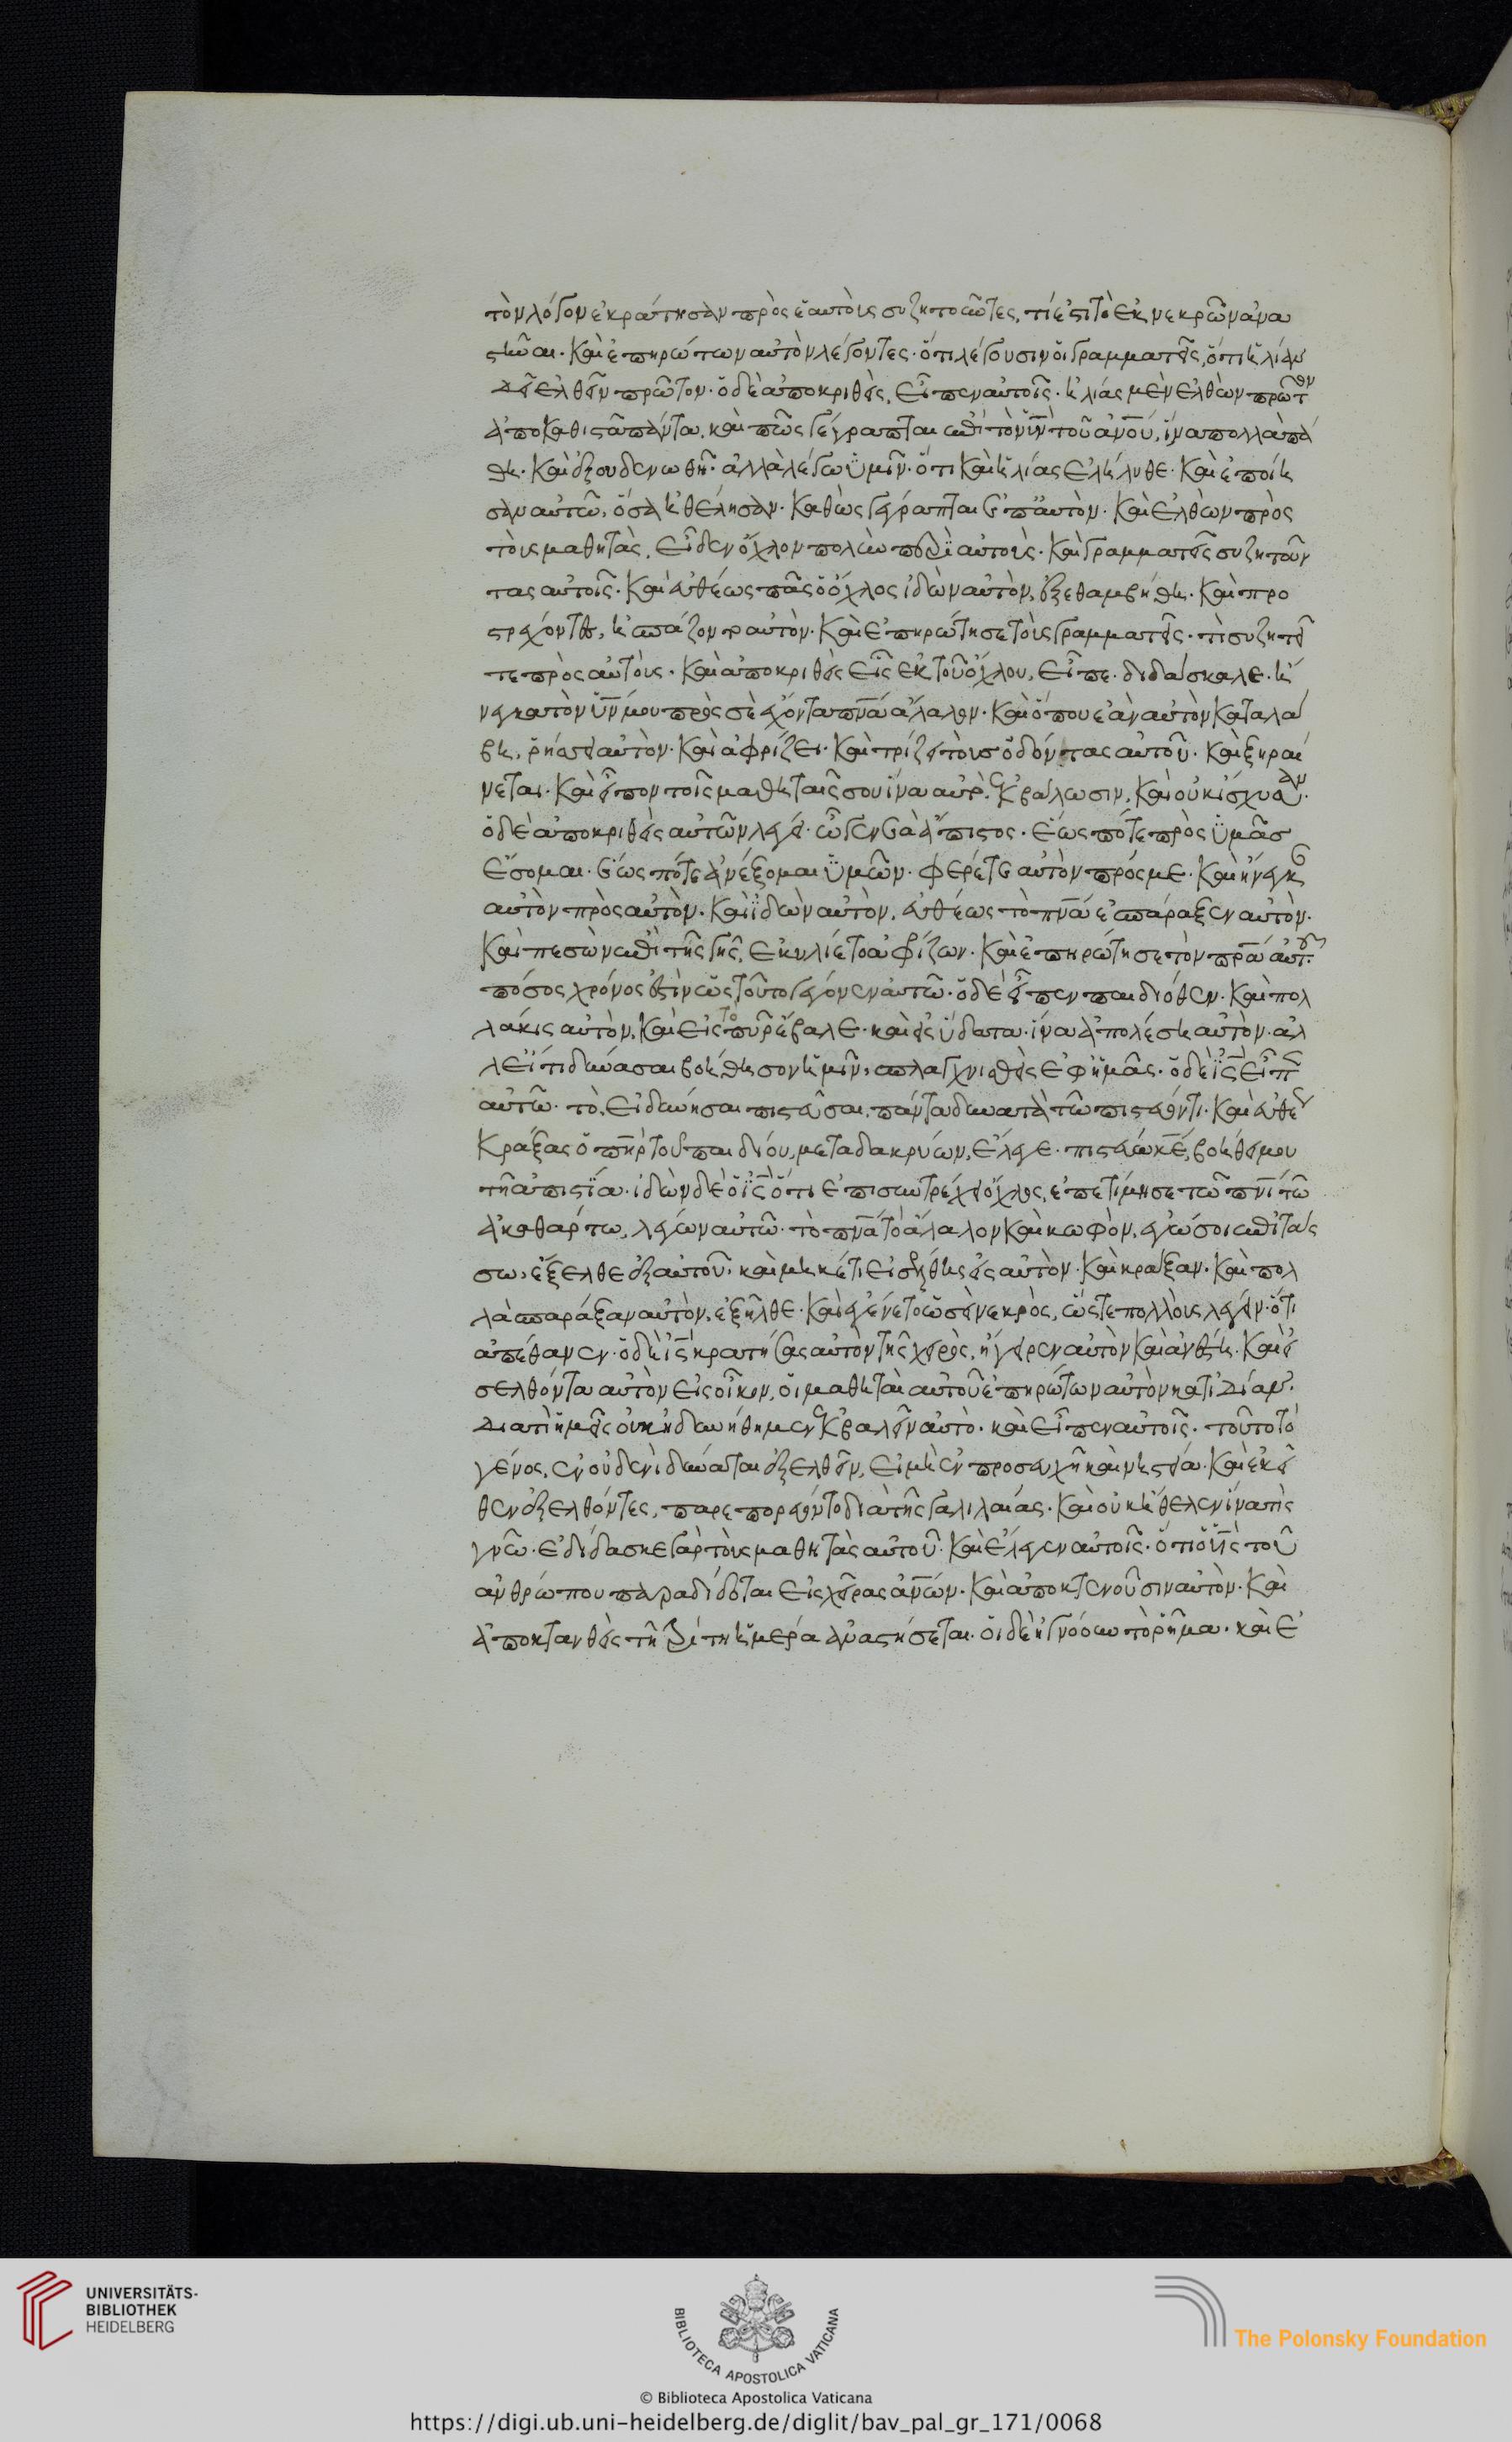 τὸν λόγον ἐκράτησαν πρὸς ἑαυτοὺς συζητοῦντες, τί ἐστι τὸ ἐκ νεκρῶν ἀνα
στῆναι. καὶ ἐπηρώτων αὐτὸν λέγοντες. ὅτι λέγουσιν οἱ γραμματεῖς, ὅτι ἠλίαν
δεῖ ἐλθεῖν πρῶτον. ὁ δὲ ἀποκριθεὶς, εἶπεν αὐτοῖς. ἠλίας μὲν ἐλθὼν πρῶτον
ἀποκαθιστᾶ πάντα, καὶ πῶς γέγραπται ἐπὶ τὸν ὑν τοῦ ανου, ἵνα πολλὰ πά
θη. καὶ ἐξουδενωθῆ. ἀλλὰ λέγω ὑμῖν. ὅτι καὶ ἠλίας ἐλήλυθε. καὶ ἐποίη
σαν αὐτῶ, ὅσα ἠθέλησαν. καθὼς γέγραπται ἐπ' αὐτὸν. καὶ ἐλθὼν πρὸς
τοὺς μαθητὰς, εἶδεν ὄχλον πολὺν περὶ αὐτοὺς. καὶ γραμματεῖς συζητοῦν
τας αὐτοῖς. καὶ εὐθέως πᾶς ὁ ὄχλος ἰδὼν αὐτὸν, ἐξεθαμβήθη. καὶ προ
στρέχοντες, ἠσπάζοντο αὐτὸν. καὶ ἐπηρώτησε τοὺς γραμματεῖς. τί συζητεῖ
τε πρὸς αὐτοὺς. καὶ ἀποκριθεὶς εἷς ἐκ τοῦ ὄχλου, εἶπε. διδάσκαλε. ἤ
νεγκα τὸν ὑν μου πρὸς σὲ ἔχοντα πνα ἄλαλον. καὶ ὅπου ἐὰν αὐτὸν καταλά
βη, ῥήσσει αὐτὸν. καὶ ἀφρίζει. καὶ τρίζει τοὺς ὀδόντας αὐτοῦ. καὶ ξηραί
νεται. καὶ εἶπον τοῖς μαθηταῖς σου ἵνα αὐτὸ ἐκβάλωσιν, καὶ οὐκ ἴσχυσαν.
ὁ δὲ ἀποκριθεὶς αὐτῶν λέγει. ὦ γενεὰ ἄπιστος. ἕως πότε πρὸς ὑμᾶς
ἔσομαι. ἕως πότε ἀνέξομαι ὑμῶν. φέρετε αὐτὸν πρός με. καὶ ἤνεγκαν
αὐτὸν πρὸς αὐτὸν. καὶ ἰδὼν αὐτὸν, εὐθέως τὸ πνα ἐσπάραξεν αὐτὸν.
καὶ πεσὼν ἐπὶ τῆς γῆς, ἐκυλίετο ἀφρίζων. καὶ ἐπηρώτησε τὸν πρα αὐτοῦ.
πόσος χρόνος ἐστὶν ὡς τοῦτο γέγονεν αὐτῶ. ὁ δὲ εἶπεν παιδιόθεν. καὶ πολ
λάκις αὐτὸν, καὶ εἰς τὸ πῦρ ἔβαλε. καὶ εἰς ὕδατα. ἵνα ἀπολέση αὐτὸν. ἀλ
λ' εἴ τι δύνασαι βοήθησον ἡμῖν, σπλαγχνισθεὶς ἐφ' ἡμᾶς. ὁ δὲ ις εἶπεν
αὐτῶ. τὸ, εἰ δύνησαι πιστεῦσαι, πάντα δυνατὰ τῶ πιστεύοντι. καὶ εὐθὺς
κράξας ὁ πηρ τοῦ παιδίου, μετὰ δακρύων, ἔλεγε. πιστεύω κε, βοήθει μου
τῆ ἀπιστία. ἰδὼν δὲ ὁ ις ὅτι ἐπισυντρέχει ὄχλος, ἐπετίμησε τῶ πνι τῶ
ἀκαθάρτω, λέγων αὐτῶ. τὸ πνα τὸ ἄλαλον καὶ κωφὸν, ἐγώ σοι ἐπιτάσ
σω, ἔξελθε ἐξ αὐτοῦ. καὶ μηκέτι εἰσέλθης εἰς αὐτὸν. καὶ κράξαν. καὶ πολ
λὰ σπαράξαν αὐτὸν, ἐξῆλθε. καὶ ἐγένετο ὡσεὶ νεκρὸς, ὥστε πολλοὺς λέγειν. ὅτι
ἀπέθανεν. ὁ δὲ ις κρατήσας αὐτὸν τῆς χειρὸς, ἤγειρεν αὐτὸν καὶ ἀνέστη. καὶ εἰ
σελθόντα αὐτὸν εἰς οἶκον, οἱ μαθηταὶ αὐτοῦ ἐπηρώτων αὐτὸν κατ' ἰδίαν.
διατί ἡμεῖς οὐκ ἠδυνήθημεν ἐκβαλεῖν αὐτὸ. καὶ εἶπεν αὐτοῖς. τοῦτο τὸ
γένος, ἐν οὐδενὶ δύναται ἐξελθεῖν, εἰ μὴ ἐν προσευχῆ καὶ νηστεία. καὶ ἐκεῖ
θεν ἐξελθόντες, παρεπορεύοντο διὰ τῆς γαλιλαίας. καὶ οὐκ ἤθελεν ἵνα τὶς
γνῶ. ἐδίδασκε γὰρ τοὺς μαθητὰς αὐτοῦ. καὶ ἔλεγεν αὐτοῖς. ὅτι ὁ ὑς τοῦ
ἀνθρώπου παραδίδοται εἰς χεῖρας ανων. καὶ ἀποκτενοῦσιν αὐτὸν. καὶ
ἀποκτανθεὶς τῆ τρίτη ἡμέρα ἀναστήσεται. οἱ δὲ ἠγνόουν τὸ ῥῆμα. καὶ ἐ
UNIVERSITÄTS-
BIBLIOTHEK
HEIDELBERG
BIBLIOTECA APOSTOLICA VATICANA
The Polonsky Foundation
© Biblioteca Apostolica Vaticana
https://digi.ub.uni-heidelberg.de/diglit/bav_pal_gr_171/0068